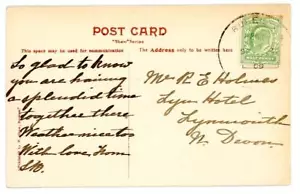 POST CARD
"Shaw" Series
This space may be used for communication
The Address only to be written here
So glad to know
you are having
a splendid time
together there
Weather nice too
With love from
Mrs R E Holmes
Lyn Hotel
Lynmouth
N. Devon